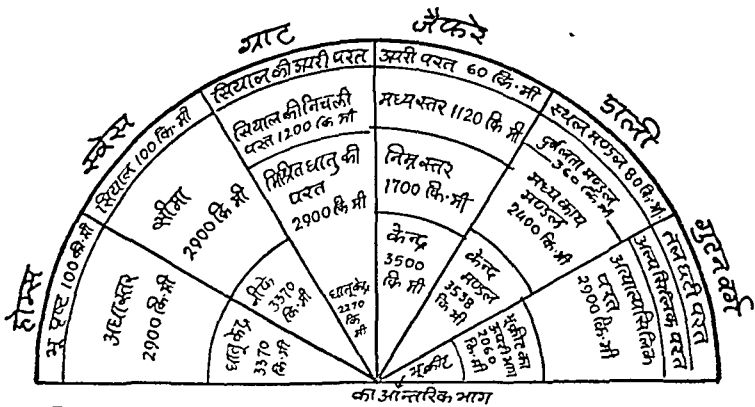 होम्स
स्वेस
ग्राट
जैफरे
डाली
गुटेन वर्ग
भू पृष्ट 100 कि.मी
अधास्तर
2900 कि.मी
धातु केन्द्र
3370
कि.मी
सियाल 100 कि.मी
सीमा
2900 कि मी
नीफे
3370
कि.मी
सियाल की ऊपरी परत
सियाल की निचली
परत 1200 कि मी
मिश्रित धातु की
परत
2900 कि मी
धातु केन्द्र
2270
कि
मी
ऊपरी परत 60 कि.मी
मध्य स्तर 1120 कि मी
निम्न स्तर
1700 कि.मी
केन्द्र
3500
कि मी
स्थल मण्डल 80 कि.मी
दुर्बलता मण्डल
360 कि.मी
मध्य काय
मण्डल
2400 कि.मी
केन्द्र
मण्डल
3538
कि.मी
तल छटी परत
अल्प सिलिक परत
अत्याल्प सिलिक
परत
2900 कि.मी
भूक्रीट का
ऊपरी भाग
2060
कि.मी
भूक्रीट
का आन्तरिक भाग